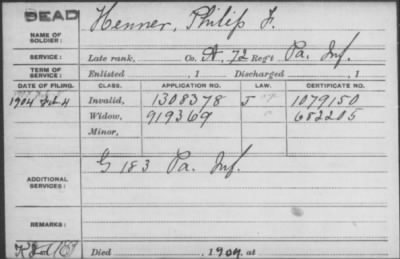 DEAD
NAME OF SOLDIER: Henner, Philip F.
SERVICE: Late rank, Co. A. 72 Reg't Pa. Inf.
TERM OF SERVICE: Enlisted , 1 Discharged , 1
DATE OF FILING. CLASS. APPLICATION NO. LAW. CERTIFICATE NO.
1904 Invalid, 1308378 J 1079150
Widow, 919369 682205
Minor,
ADDITIONAL SERVICES: G 183 Pa. Inf.
REMARKS:
Died , 1904, at